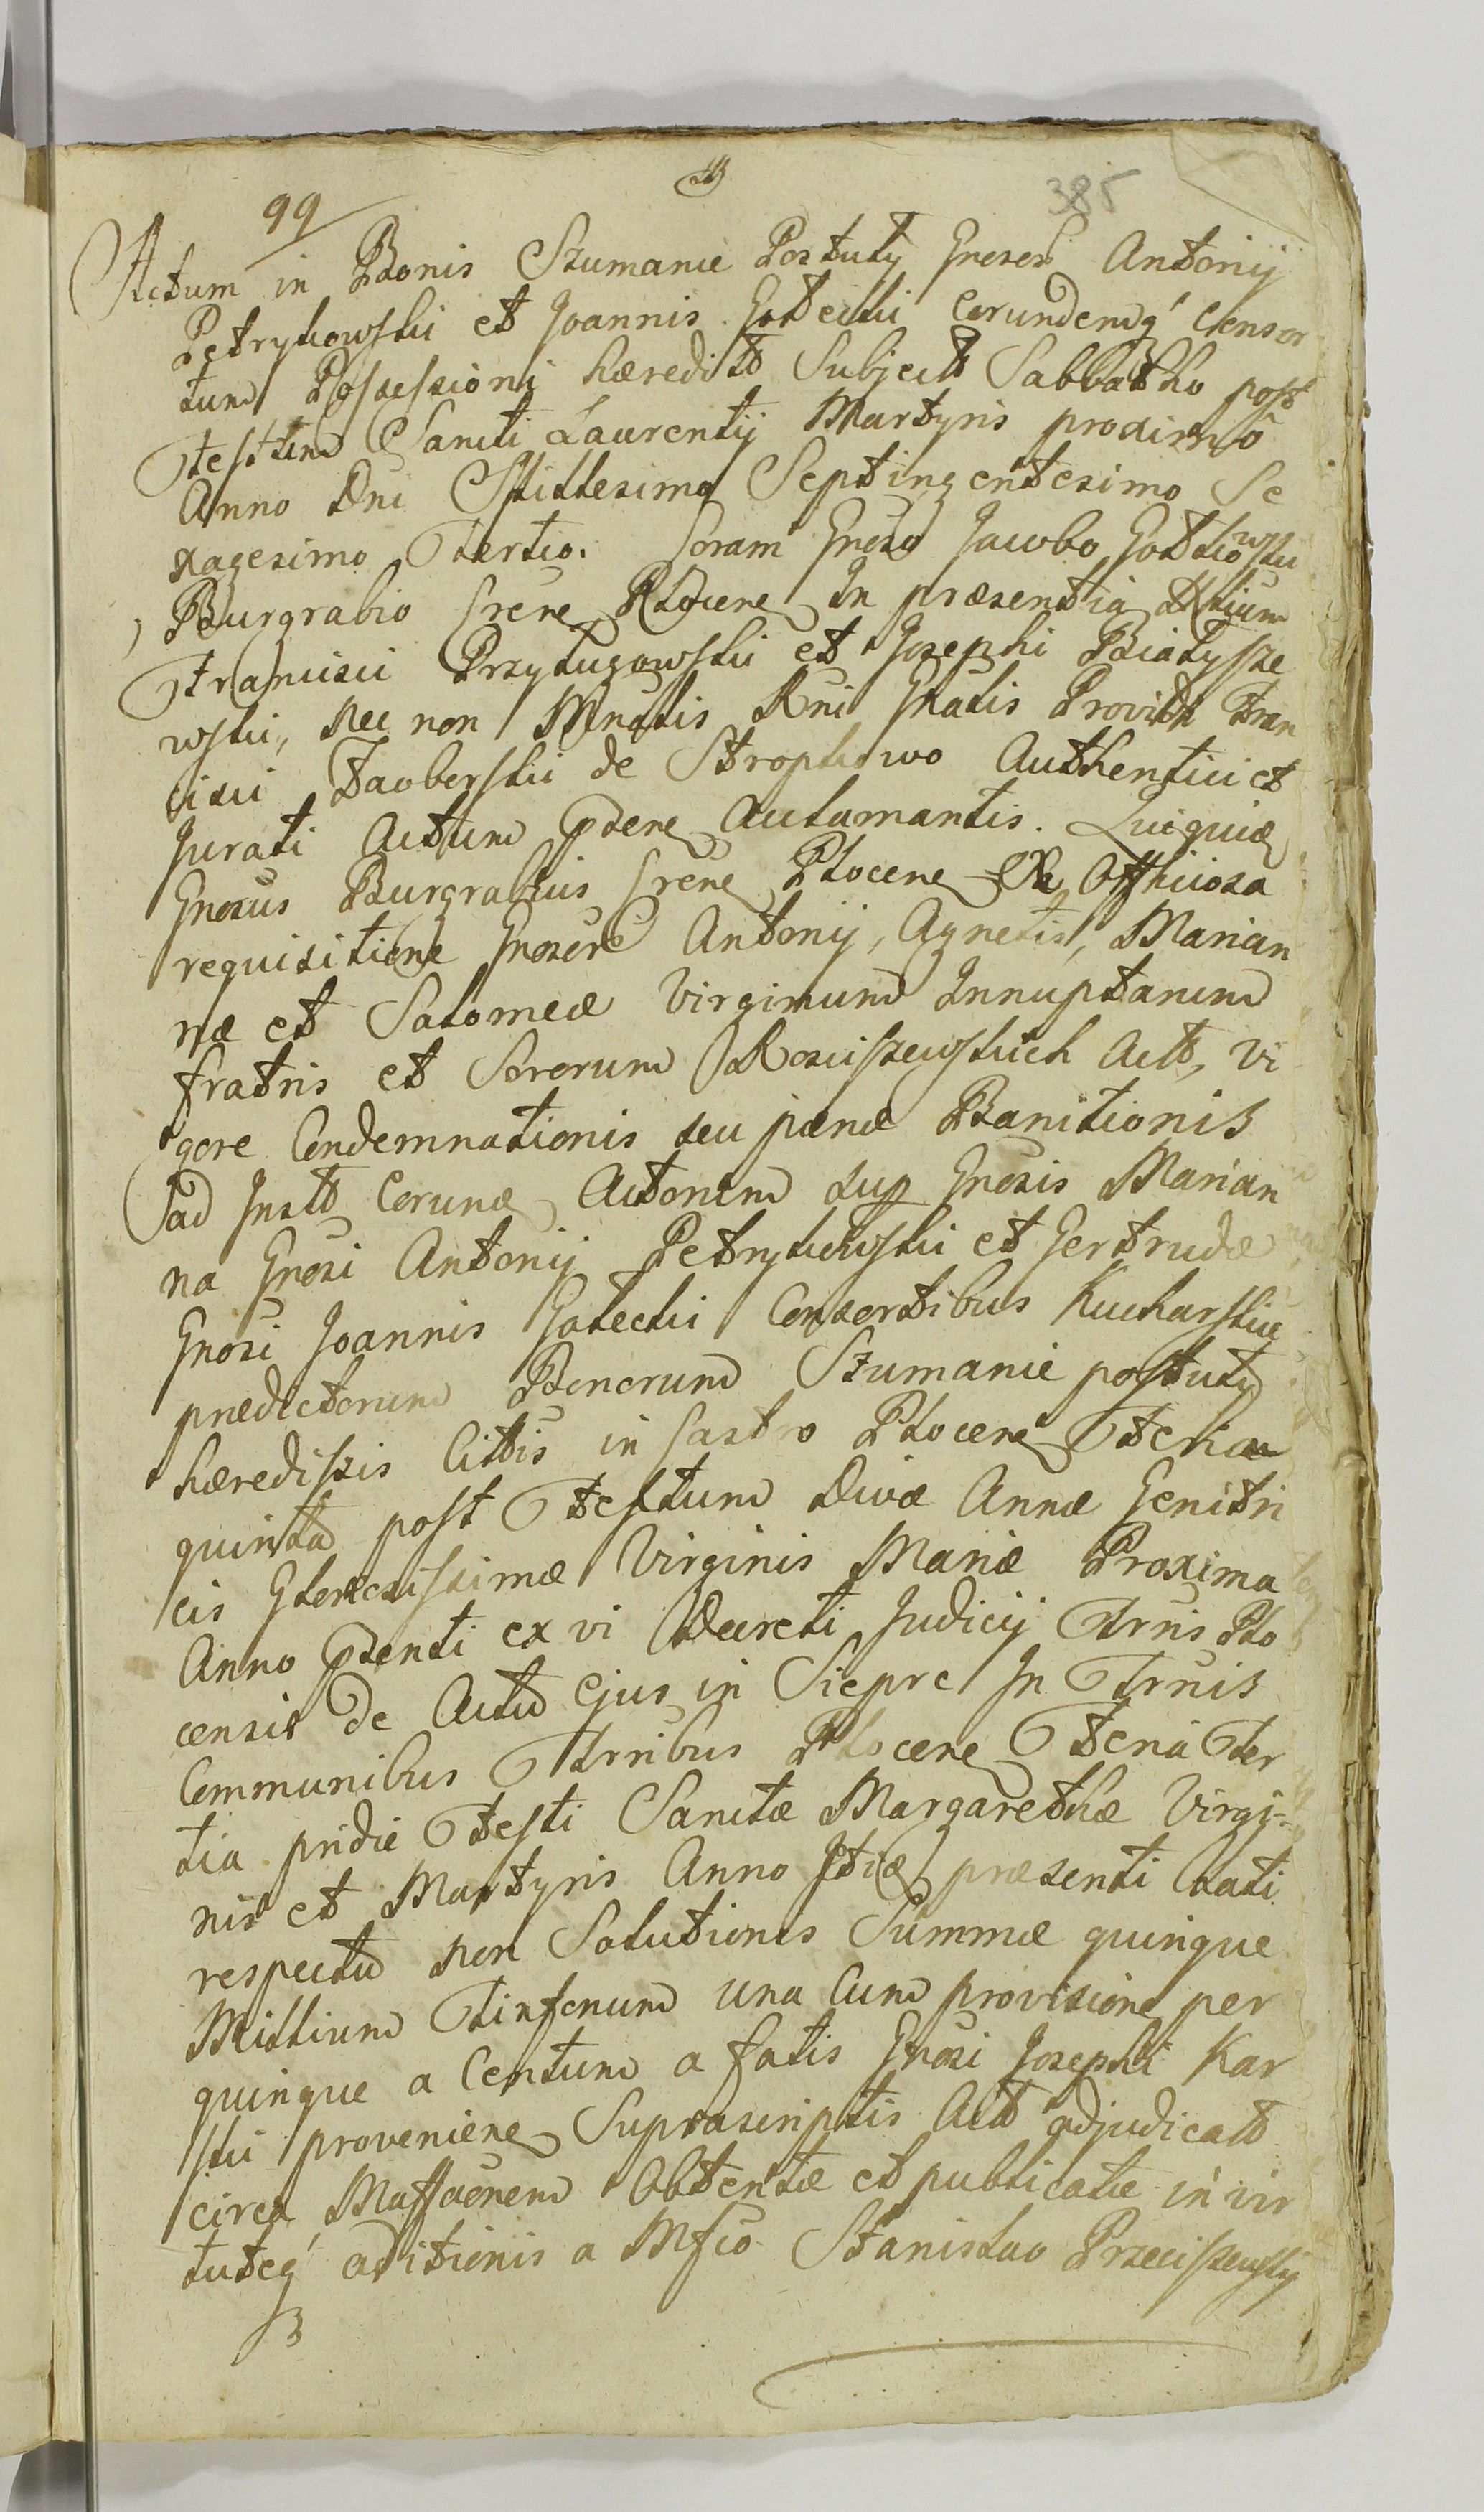 99
385
Actum in Bonis Szumanie Postuty Gnosor Antonij
Petrykowski et Joannis Gołecki Eorundemq Consor
tum Possessioni hæredit Subject Sabbatho post
Festum Sancti Laurentij Martyris proximo
Anno Dni Millesimo Septingentesimo Se
xagesimo Tertio. Coram Gnoso Jacobo Gottkowski
Burgrabio Crene Plocene In præsentia
Francisci Przyłuzowski et Josephi Białysze
wski, nec non Mnrlis Rni Gnalis Providi Fran
cisci Jaworski de Stropkowo Authentici et
Jurati Actum pnene Aclamantis. Quiquidę
Gnosus Burgrabius Crene Plocene Ex Officiosa
requisitione Gnosor Antonij, Agnetis, Marian
næ et Salomeæ Virginum Innuptarum
fratris et Sororum Rosciszewskich Act, Vi
gore Condemnationis seu pænæ Banitionis
ad Inst Eorund Actorum sup Gnosis Marian
na Gnosi Antonij Petrykowski et Gertrude
Gnosi Joannis Gołecki Consortibus Kucharskie
prædictorum Bonorum Szumanie postuty
hæredissis Cittis in Castro Plocene Feria
quinta post Festum Divæ Annæ Genitri
cis Gloriosissimæ Virginis Mariæ Proxima
Anno pnenti ex vi Decreti Judicij Trnis Plo
censis de Actu Ejus in Sieprc In Trnis
Communibus Trnibus Plocene Feria Ter
tia pridie Festi Sanctæ Margarethæ Virgi-
nis et Martyris Anno Itidę præsenti Lati
respectu non Solutionis Summæ quinque
Millium Tinfonum una Cum provisione per
quinque a Centum a fatis Gnosi Josephi Kar
ski proveniene Suprascriptis Act adjudicatt
circa Maffaonem Obtentæ et publicatæ in vir
tuteq aditionis a Mfco Stanislao Przeciszewskj